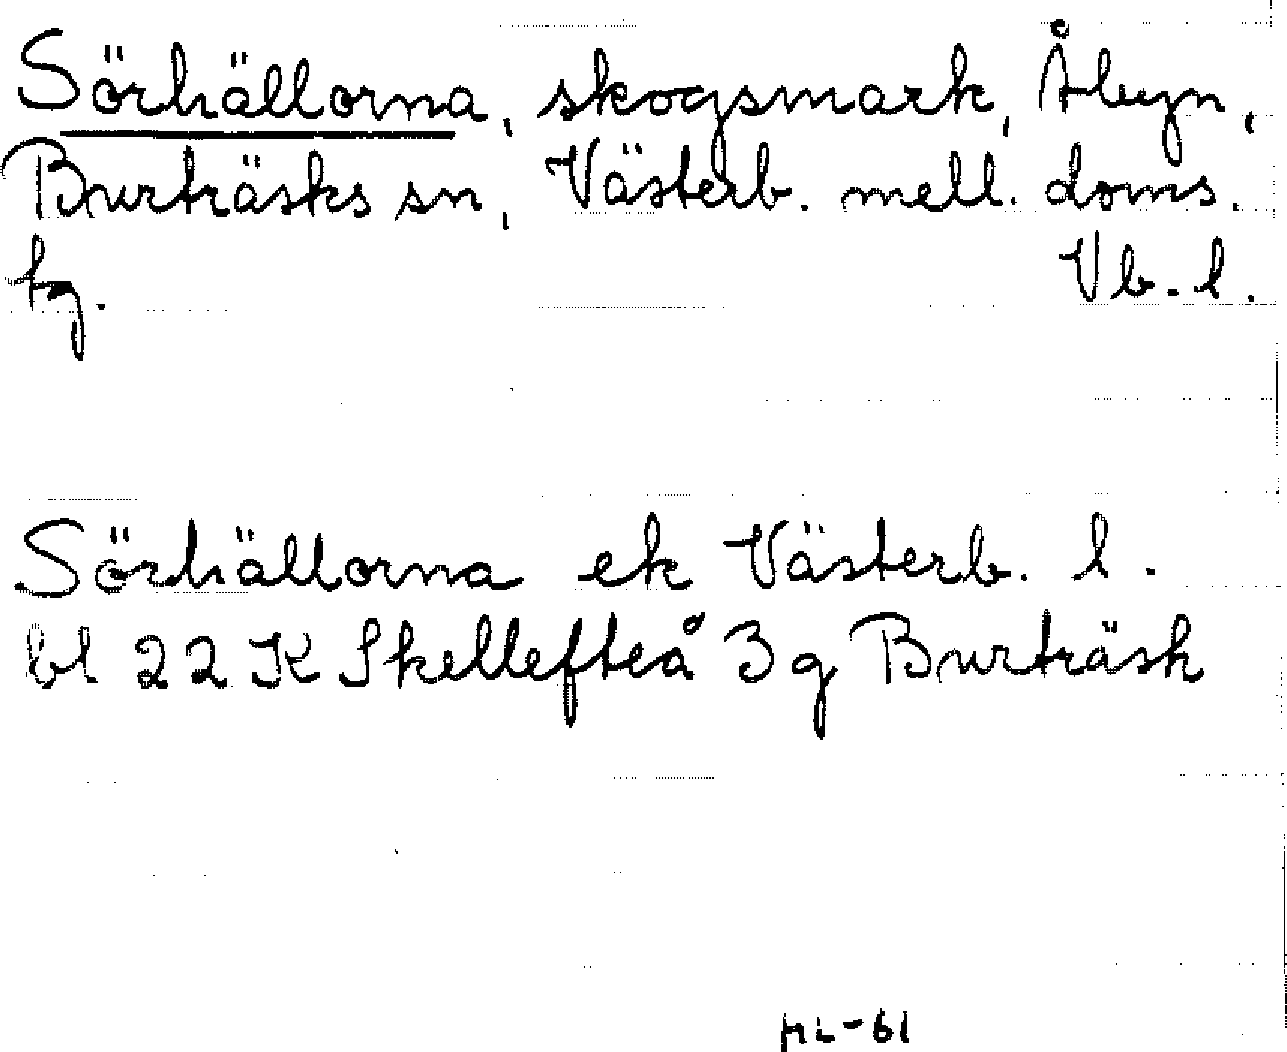 Sörhällorna, skogsmark, Åbyn,
Burträsks sn, Västerb. mell. doms.
tg. Vb. l.
Sörhällorna ek Västerb. l.
bl 22 K Skellefteå 3g Burträsk
ML-61